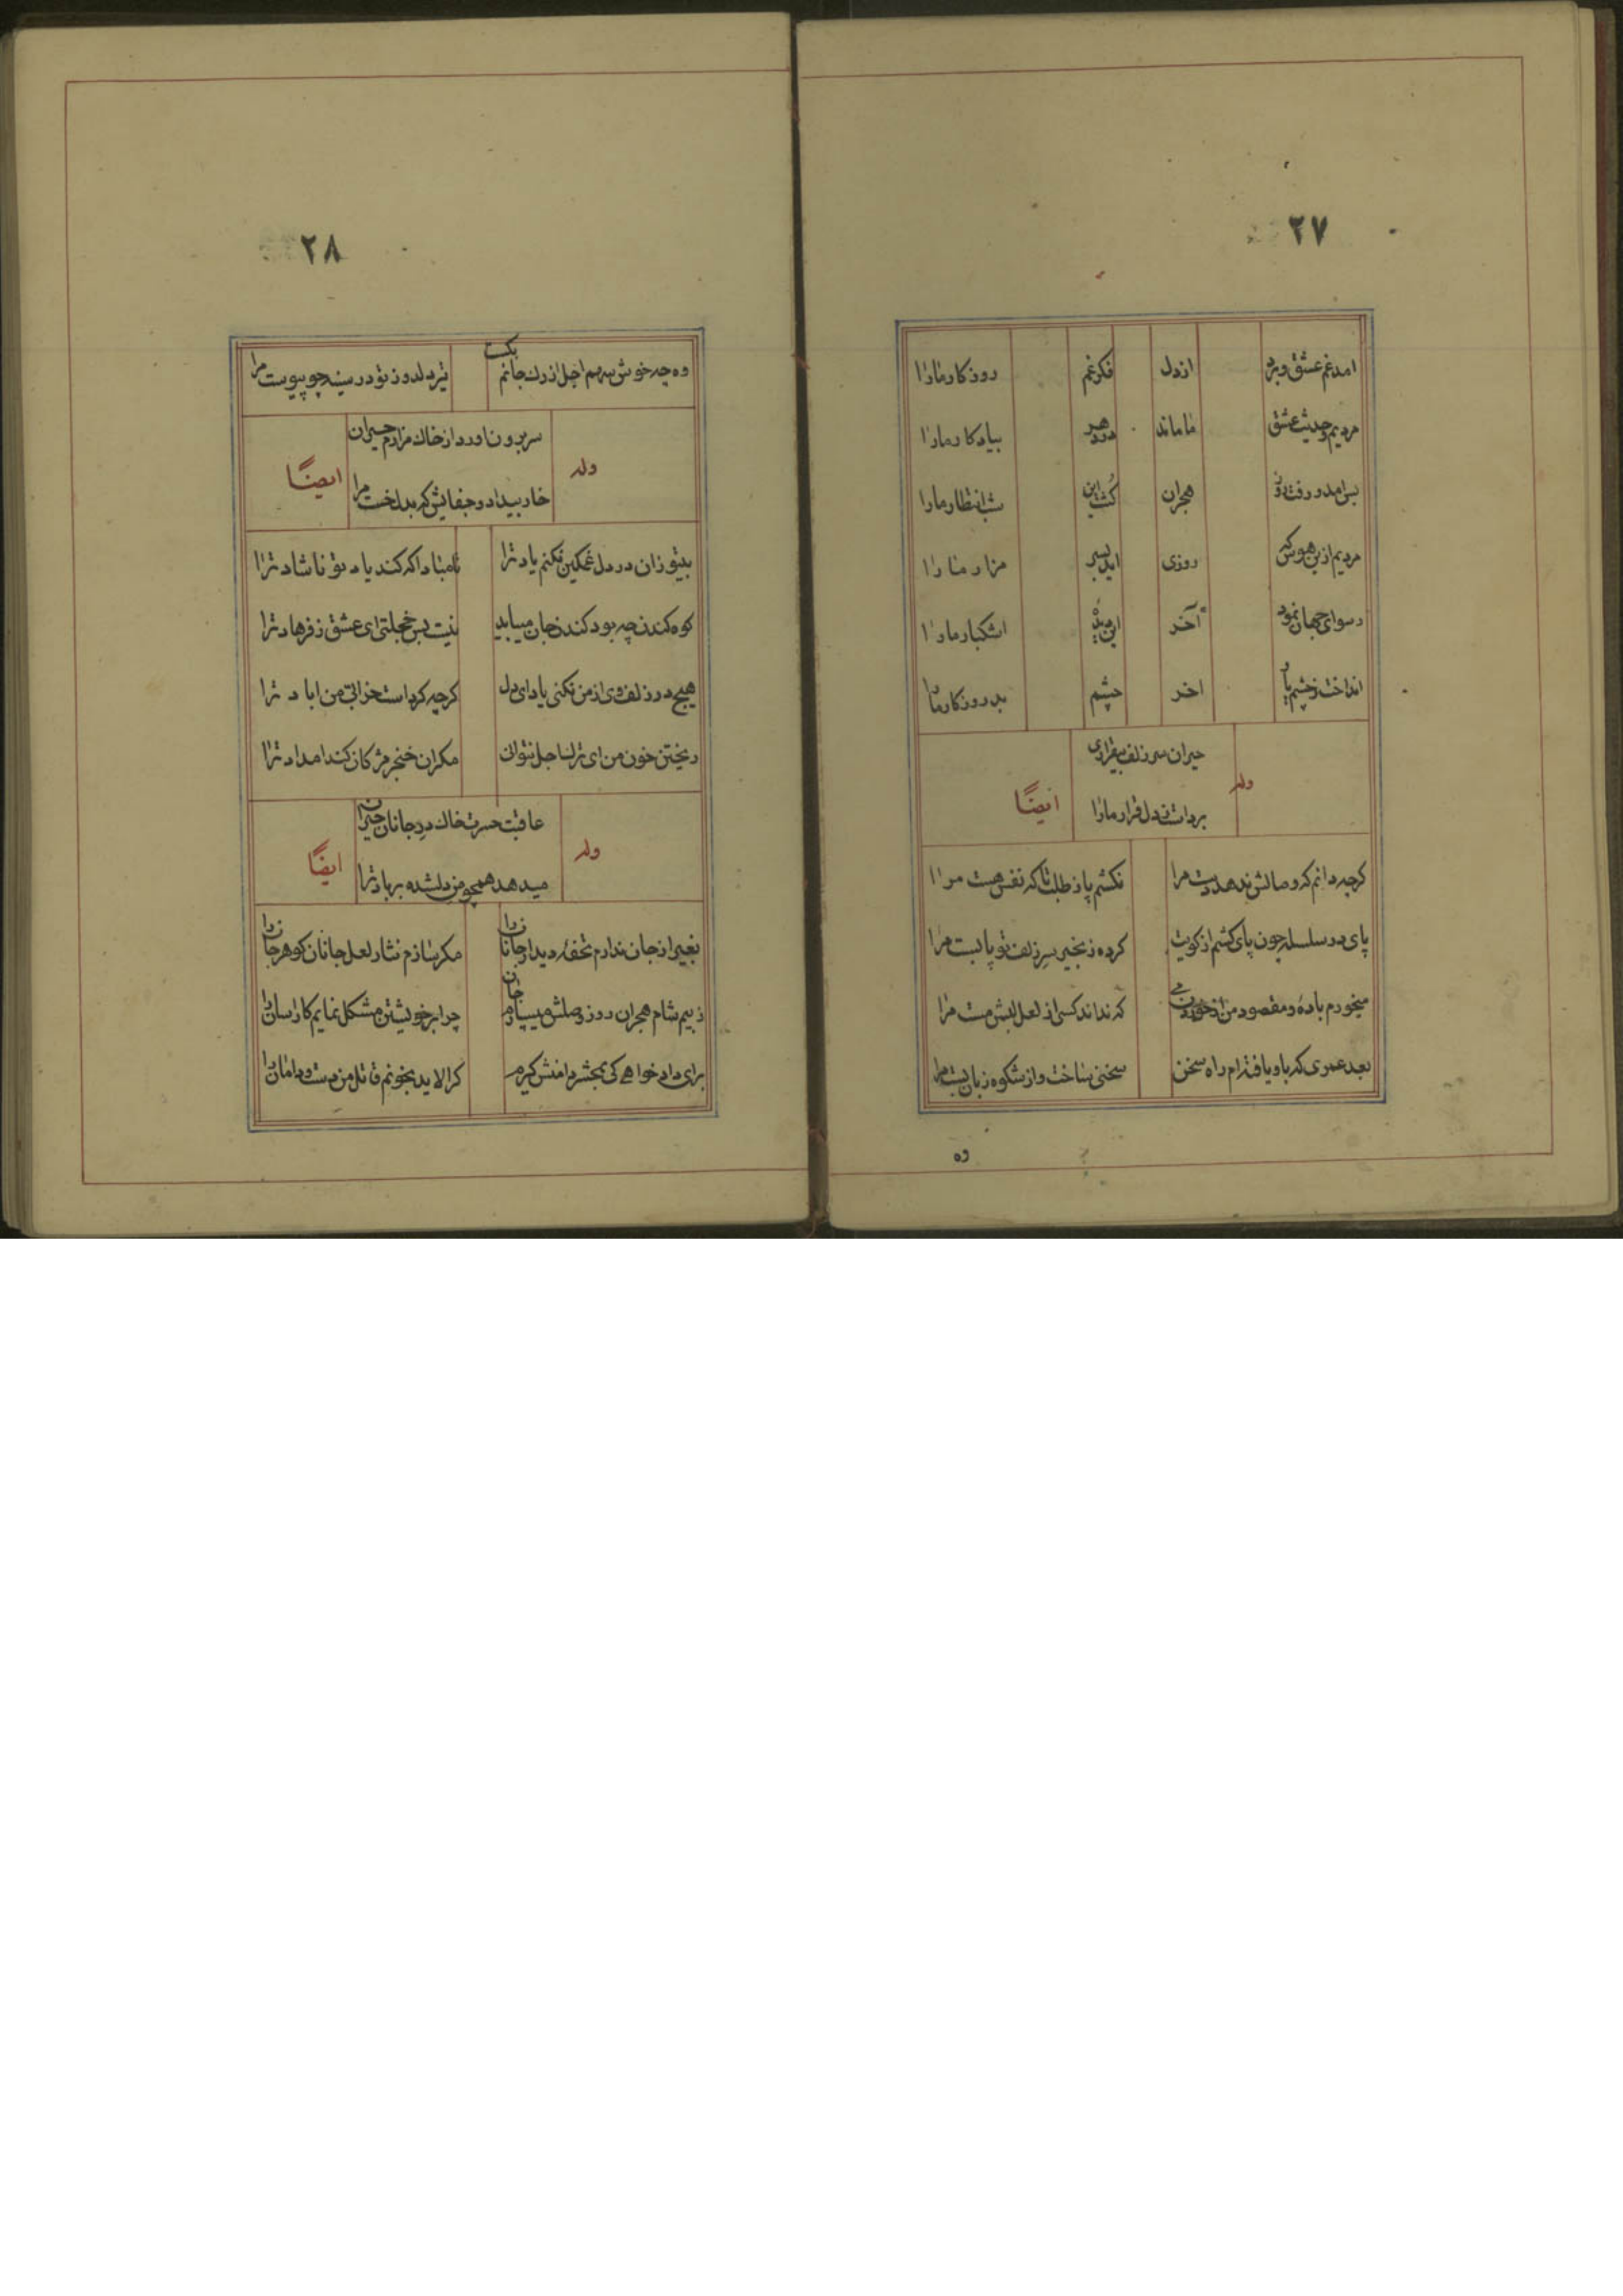 ۲۷
امد غم عشق و برد از دل فکر غم روزکار مارا
مردیم و حدیث عشق ما ماند در هر بیاد کار مارا
بس امد و رفت روز هجران کشت این شب انتظار مارا
مردیم ازین هوس که روزی اید بسر مزار مارا
رسوای جهان نمود آخر این دیده اشکبار مارا
انداخت ز چشم یار اخر چشم بد روزکار مارا
حیران سر زلف بیقراری
وله
ایضاً
برداشت ز دل قرار مارا
کرچه دانم که وصالش ندهد دست مرا نکشم پا ز طلب تا که نفس هست مرا
پای در سلسله چون پای کشم از کویت کرده زنجیر سر زلف تو پا بست مرا
میخورم باده و مقصود من از خوردن می که نداند کسی از لعل لبش مست مرا
بعد عمری که باو یافته‌ام راه سخن سخنی ساخت و از شکوه زبان بست مرا
وه
۲۸
وه چه خوش سهم اجل از رک جانم بکسست تیر دلدوز تو در سینه چو پیوست مرا
سر برون ناورد از خاک مزارم حیران
وله
ایضاً
خار بیداد و جفایش که بدل خست مرا
بیتو زان در دل غمکین نکنم یاد ترا تا مبادا که کند یاد تو ناشاد ترا
کوه کندن چه بود کندن جان میباید نیست بس خجلتی ای عشق ز فرهاد ترا
هیچ در زلف وی از من نکنی یاد ای دل کرچه کرد است خرابی من اباد ترا
ریختن خون من ای ترک اجل نتوانی مکر ان خنجر مژکان کند امداد ترا
عاقبت حسرت خاک در جانان حیران
وله
ایضاً
میدهد همچو من دلشده بر باد ترا
بغیر از جان ندارم تحفه دیدار جانان را مکر سازم نثار لعل جانان کوهر جان را
ز بیم شام هجران روز وصلش میسپارم جان چرا بر خویشتن مشکل نمایم کار اسان را
برای داد خواهی کی بمحشر دامنش کیرم کر الاید بخونم قاتل من دست و دامان را